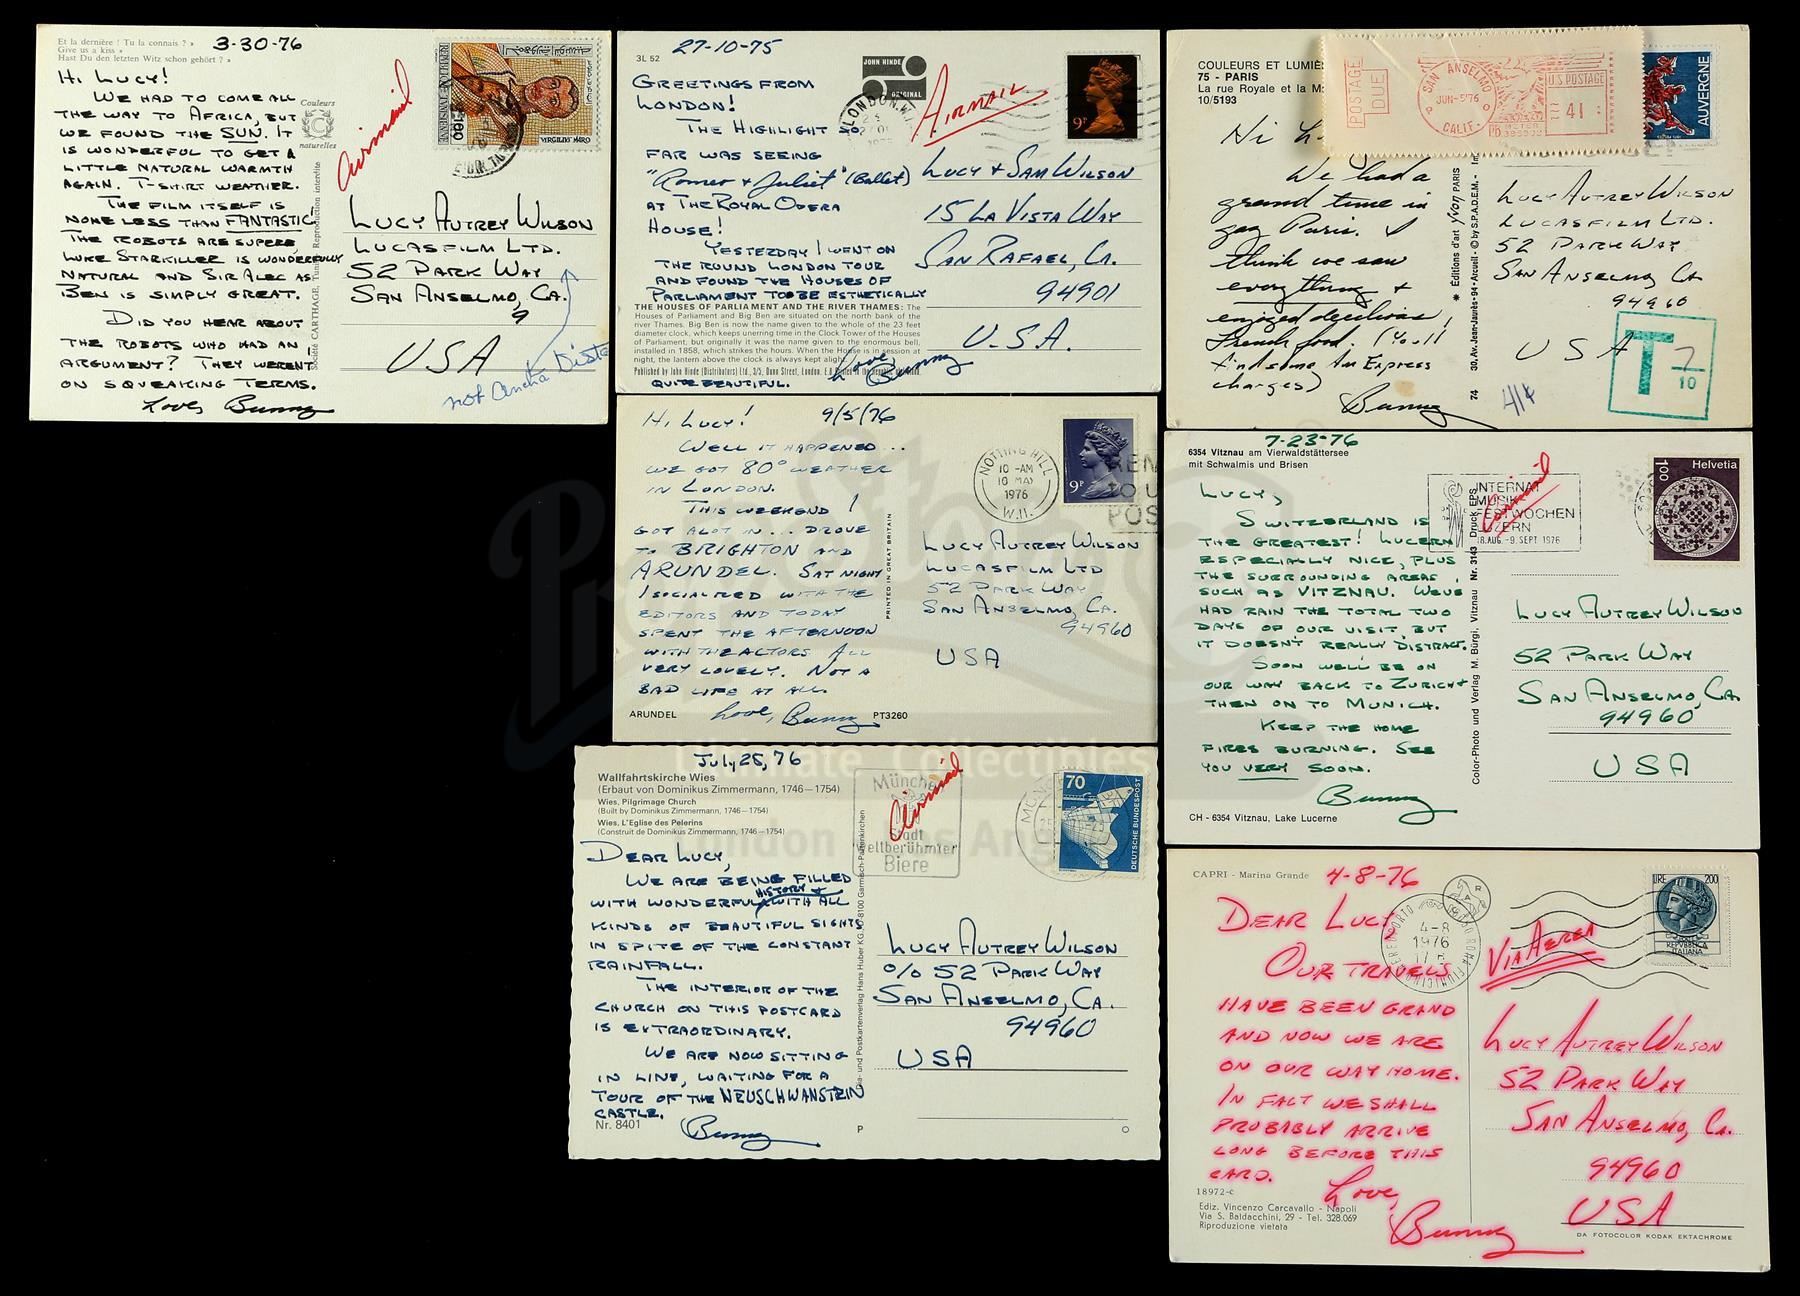 Et la dernière ! Tu la connais ? »
Give us a kiss »
Hast Du den letzten Witz schon gehört ? »
3-30-76
Hi Lucy!
We had to come all
the way to Africa, but
we found the SUN. It
is wonderful to get a
little natural warmth
again. T-shirt weather.
The film itself is
none less than FANTASTIC!
The robots are superb,
Luke Starkiller is wonderfully
natural and Sir Alec as
Ben is simply great.
Did you hear about
the robots who had an
argument? They weren't
on squeaking terms.
Love, Bunny
Couleurs
naturelles
Société CARTHAGE, Tunis Reproduction interdite
Airmail
REPUBLIQUE TUNISIENNE
VIRGILIUS MARO
Lucy Autrey Wilson
Lucasfilm Ltd.
52 Park Way
San Anselmo, Ca.
9
USA
not
3L 52
27-10-75
JOHN HINDE
ORIGINAL
Greetings from
London!
The highlight so
far was seeing
"Romeo + Juliet" (Ballet)
at the Royal Opera
House!
Yesterday I went on
the round London tour
and found the Houses of
Parliament to be esthetically
THE HOUSES OF PARLIAMENT AND THE RIVER THAMES: The
Houses of Parliament and Big Ben are situated on the north bank of the
river Thames. Big Ben is now the name given to the whole of the 23 feet
diameter clock, which keeps unerring time in the Clock Tower of the Houses
of Parliament, but originally it was the name given to the enormous bell,
installed in 1858, which strikes the hours. When the House is in session at
night, the lantern above the clock is always kept alight.
Published by John Hinde (Distributors) Ltd., 3/5, Dunn Street, London. E.8
quite beautiful.
Love, Bunny
LONDON. W.
Airmail
9P
Lucy + Sam Wilson
15 La Vista Way
San Rafael, Ca.
94901
U.S.A.
COULEURS ET LUMIÈ
75 - PARIS
La rue Royale et la M
10/5193
POSTAGE
DUE
SAN ANSELMO
JUN-5'76
CALIF.
U.S. POSTAGE
41
PB METER
AUVERGNE
Hi L
We had a
grand time in
gay Paris. I
think we saw
everything +
enjoyed delicious
French food. (You'll
find some Am Express
charges)
Bunny
74
30, Av. Jean-Jaurès-94-Arcueil - © by S.P.A.D.E.M. -
* Éditions d'art yvon PARIS
Lucy Autrey Wilson
Lucasfilm Ltd.
52 Park Way
San Anselmo Ca
94960
USA
T 7
10
Hi, Lucy!
9/5/76
Well it happened...
we got 80° weather
in London.
This weekend I
got alot in... drove
to BRIGHTON and
ARUNDEL. Sat night
I socialized with the
editors and today
spent the afternoon
with the actors. All
very lovely. Not a
bad life at all.
Love, Bunny
ARUNDEL
PT3260
PRINTED IN GREAT BRITAIN
NOTTING HILL
10 -AM
10 MAY
1976
W.11.
9P
Lucy Autrey Wilson
Lucasfilm Ltd
52 Park Way
San Anselmo, Ca.
94960
USA
7-23-76
6354 Vitznau am Vierwaldstättersee
mit Schwalmis und Brisen
Lucy,
Switzerland is
the greatest! Lucern
especially nice, plus
the surrounding areas,
such as Vitznau. We've
had rain the total two
days of our visit, but
it doesn't really distract.
Soon we'll be on
our way back to Zurich +
then on to Munich.
Keep the home
fires burning. See
you very soon.
Bunny
CH - 6354 Vitznau, Lake Lucerne
Color-Photo und Verlag M. Bürgi, Vitznau Nr. 3143 Druck EPS
Airmail
INTERNAT
MUSIK
FESTWOCHEN
LUZERN
18. AUG. - 9. SEPT 1976
100
Helvetia
Lucy Autrey Wilson
52 Park Way
San Anselmo, Ca
94960
USA
July 25, 76
Wallfahrtskirche Wies
(Erbaut von Dominikus Zimmermann, 1746—1754)
Wies, Pilgrimage Church
(Built by Dominikus Zimmermann, 1746—1754)
Wies, L'Eglise des Pelerins
(Construit de Dominikus Zimmermann, 1746—1754)
Dear Lucy,
We are being filled
history +
with wonderful with all
kinds of beautiful sights
in spite of the constant
rainfall.
The interior of the
church on this postcard
is extraordinary.
We are now sitting
in line, waiting for a
tour of the NEUSCHWANSTEIN
castle.
Nr. 8401
Bunny
P
O
Postkartenverlag Hans Huber KG, D-8100 Garmisch-Partenkirchen
München
Stadt
weltberühmter
Biere
Airmail
70
DEUTSCHE BUNDESPOST
Lucy Autrey Wilson
% 52 Park Way
San Anselmo, Ca.
94960
USA
CAPRI - Marina Grande
4-8-76
Dear Lucy,
Our travels
have been grand
and now we are
on our way home.
In fact we shall
probably arrive
long before this
card.
Love,
Bunny
18972-c
Ediz. Vincenzo Carcavallo - Napoli
Via S. Baldacchini, 29 - Tel. 328.069
Riproduzione vietata
ROMA FIUMICINO AEROPORTO
4-8
1976
17
Via Aerea
LIRE 200
REPVBBLICA
ITALIANA
Lucy Autrey Wilson
52 Park Way
San Anselmo, Ca.
94960
USA
DA FOTOCOLOR KODAK EKTACHROME
Propstore
Ultimate Collectibles
London Los Angeles